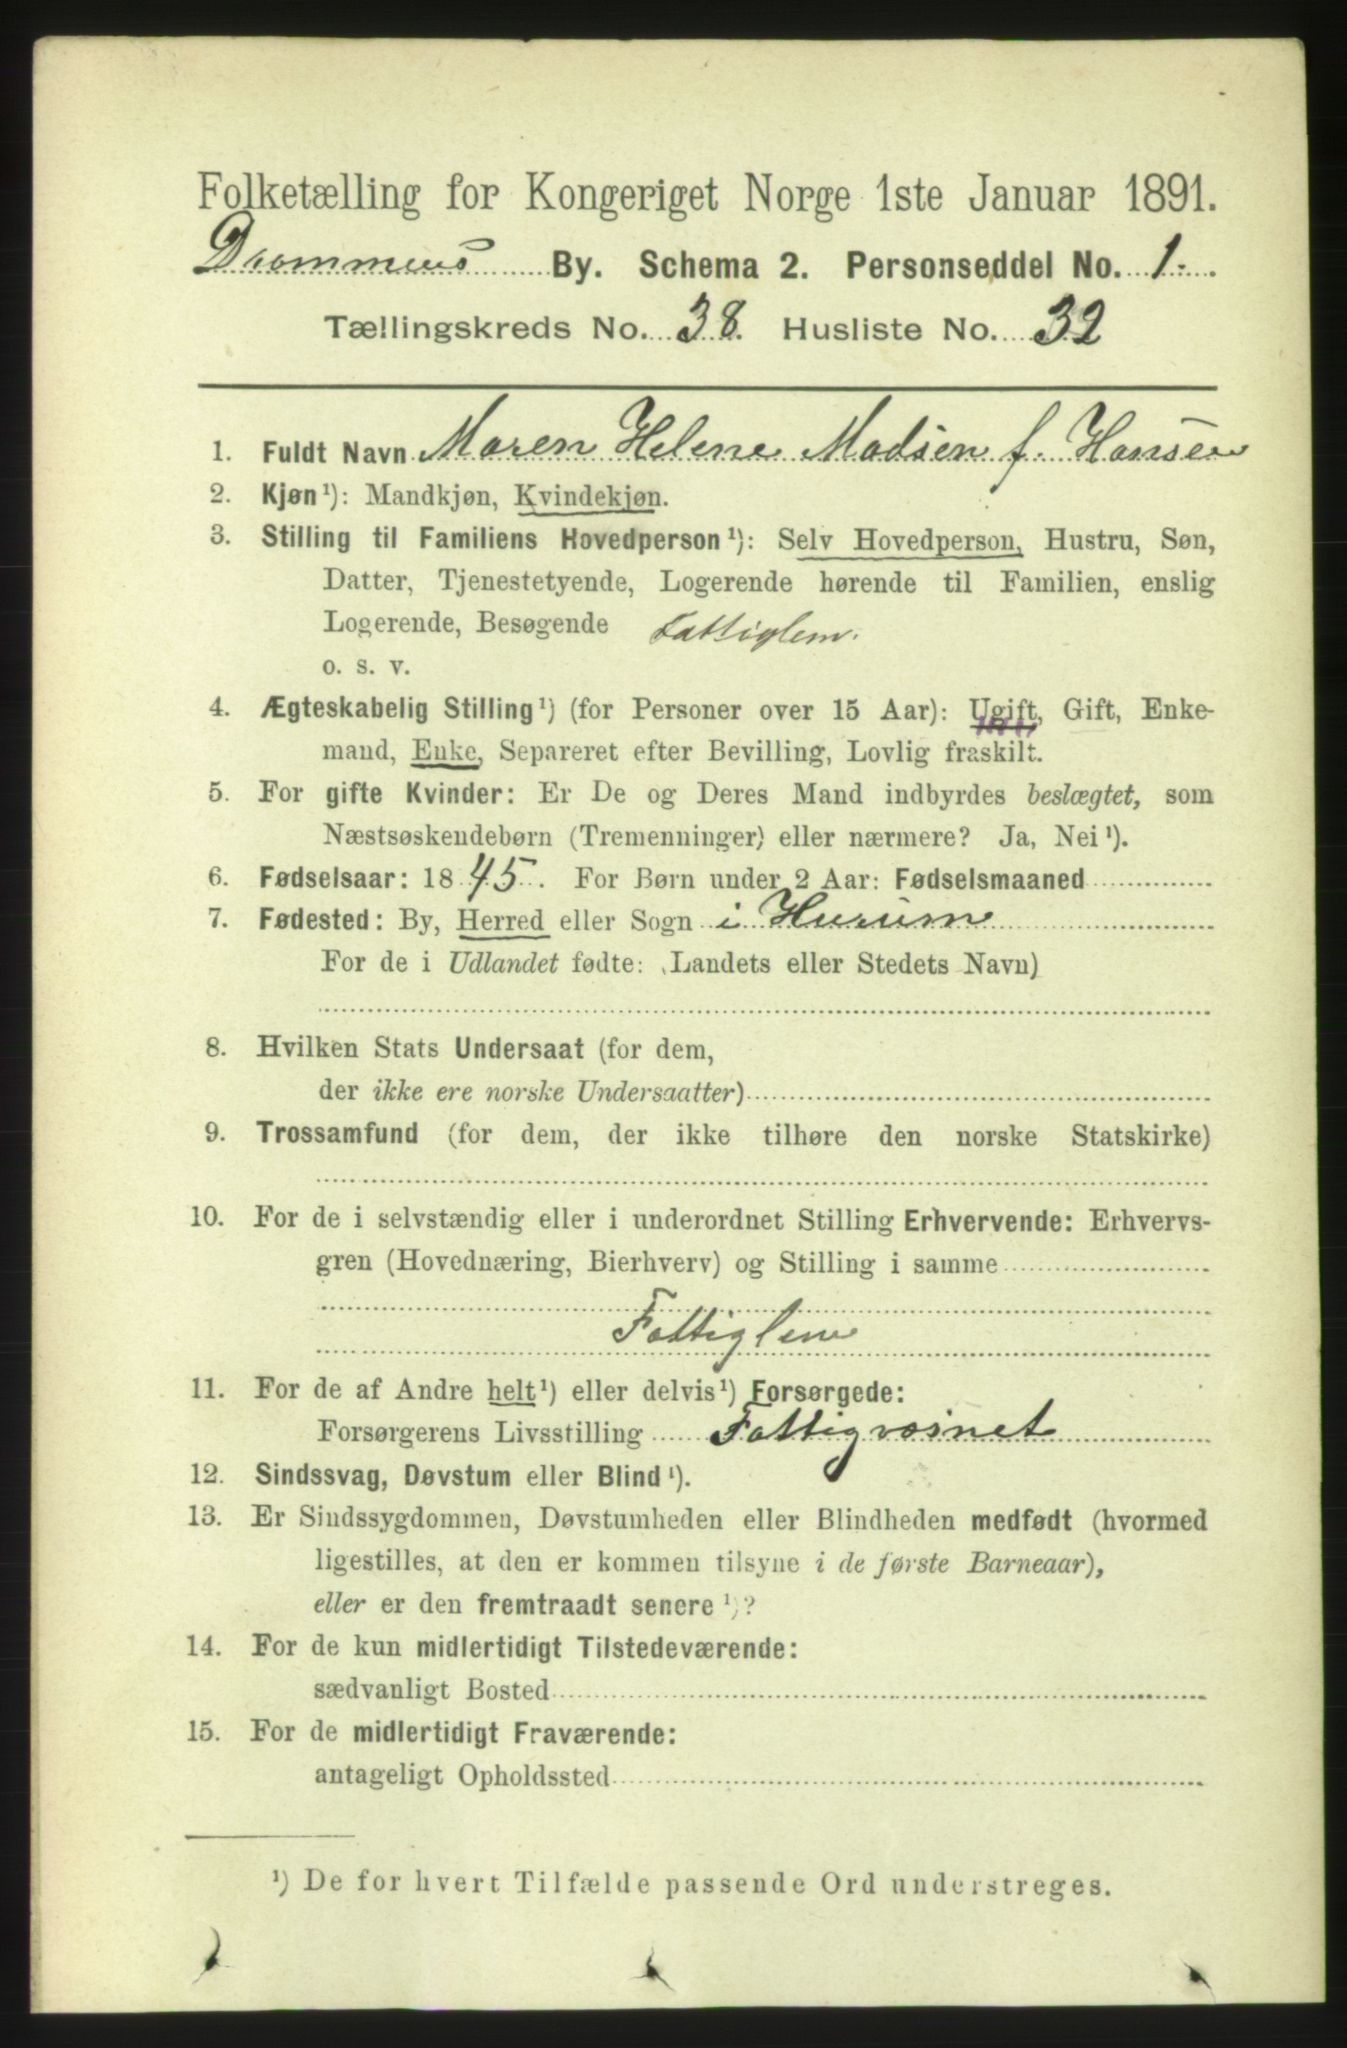 Folketælling for Kongeriget Norge 1ste Januar 1891.
Drammens By. Schema 2. Personseddel No. 1.
Tællingskreds No. 38. Husliste No. 32
1. Fuldt Navn Maren Helene Madsen f. Hansen
2. Kjøn¹): Mandkjøn, Kvindekjøn.
3. Stilling til Familiens Hovedperson¹): Selv Hovedperson, Hustru, Søn,
Datter, Tjenestetyende, Logerende hørende til Familien, enslig
Logerende, Besøgende Fattiglem.
o. s. v.
4. Ægteskabelig Stilling¹) (for Personer over 15 Aar): Ugift, Gift, Enke-
mand, Enke, Separeret efter Bevilling, Lovlig fraskilt.
5. For gifte Kvinder: Er De og Deres Mand indbyrdes beslægtet, som
Næstsøskendebørn (Tremenninger) eller nærmere? Ja, Nei¹).
6. Fødselsaar: 1845. For Børn under 2 Aar: Fødselsmaaned
7. Fødested: By, Herred eller Sogn i Hurum
For de i Udlandet fødte: (Landets eller Stedets Navn)
8. Hvilken Stats Undersaat (for dem,
der ikke ere norske Undersaatter)
9. Trossamfund (for dem, der ikke tilhøre den norske Statskirke)
10. For de i selvstændig eller i underordnet Stilling Erhvervende: Erhvervs-
gren (Hovednæring, Bierhverv) og Stilling i samme
Fattiglem
11. For de af Andre helt¹) eller delvis¹) Forsørgede:
Forsørgerens Livsstilling Fattigvæsnet
12. Sindssvag, Døvstum eller Blind¹).
13. Er Sindssygdommen, Døvstumheden eller Blindheden medfødt (hvormed
ligestilles, at den er kommen tilsyne i de første Barneaar),
eller er den fremtraadt senere¹)?
14. For de kun midlertidigt Tilstedeværende:
sædvanligt Bosted
15. For de midlertidigt Fraværende:
antageligt Opholdssted
¹) De for hvert Tilfælde passende Ord understreges.